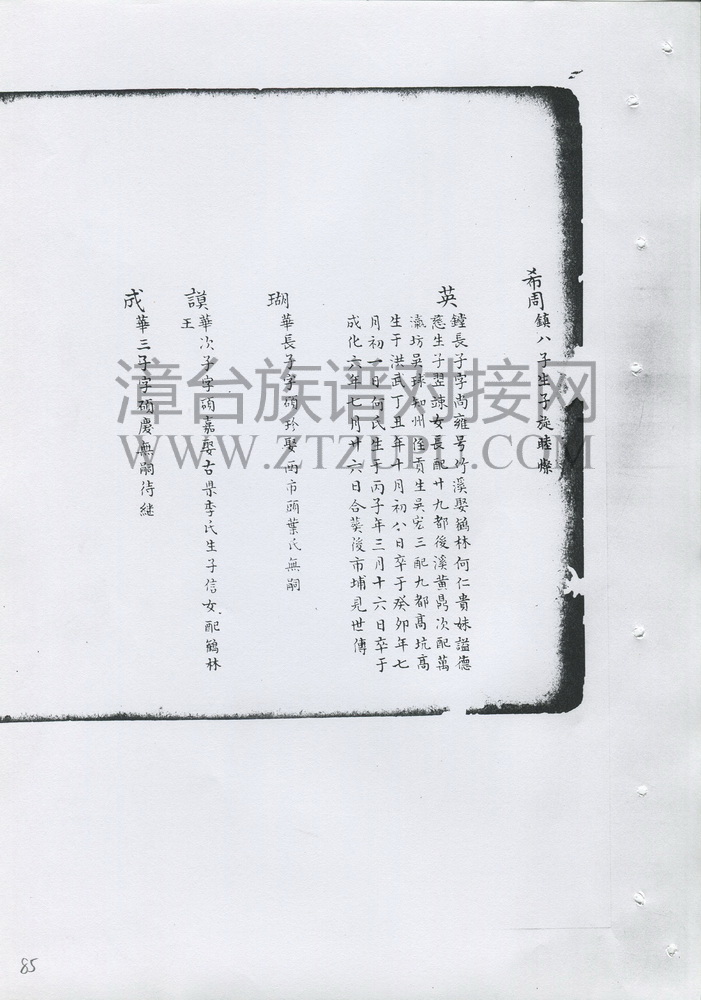 希周 鎮八子生子旋睦燦
英 鏜長子字尚雍号竹溪娶鶴林何仁貴妹謚德
慈生子翌諫女長配廿九都後溪黃鼎次配萬
瀛坊吳球知州侄貢生吳宏三配九都高坑高
生于洪武丁丑年十月初八日卒于癸卯年七
月初一日何氏生于丙子年三月十六日卒于
成化六年七月廿六日合葵後市埔見世傳
瑚 華長子字碩珍娶西市頭葉氏無嗣
謨 華次子字碩嘉娶古県李氏生子信女配鶴林
王
成 華三子字碩慶無嗣待継
漳台族谱对接网
WWW.ZTZUPU.COM
85